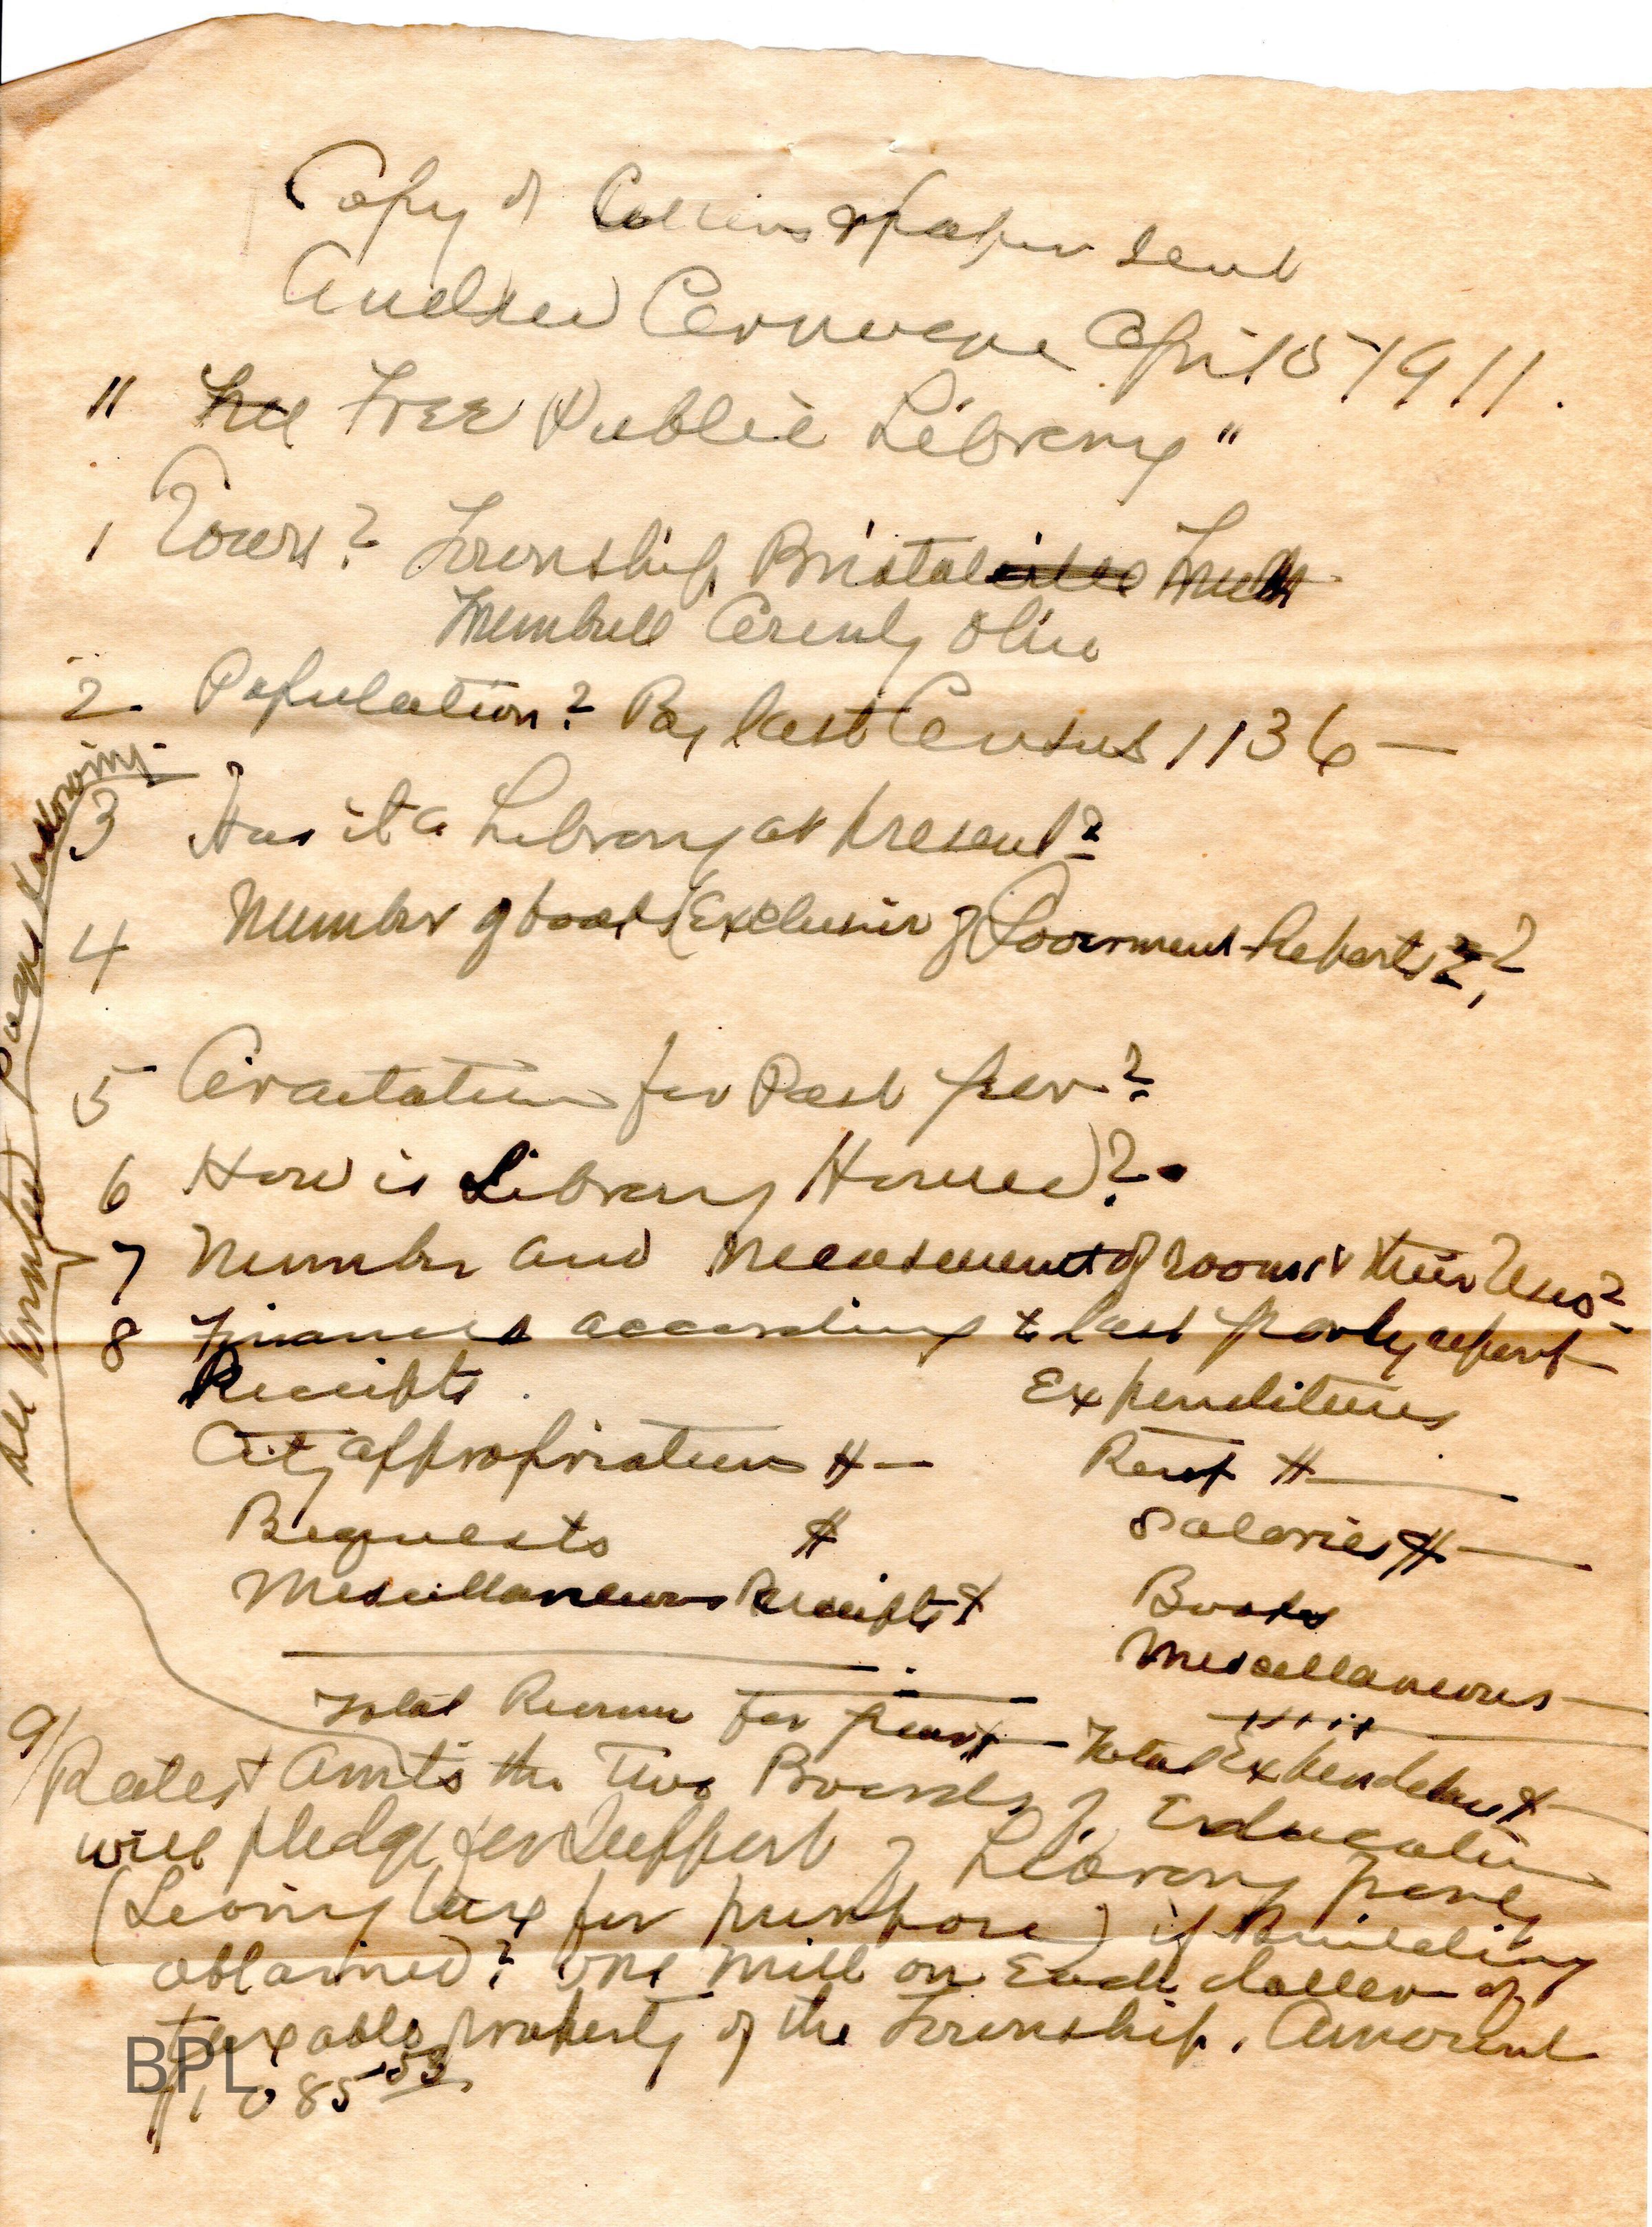 Copy of paper sent
Andrew Carnegie April 5 1911.
" Free Free Public Library "
1 Town? Township Bristol
Trumbull County Ohio
2 Population? By last Census 1136 —
3 Has it a Library at present?
4 Number of books (Exclusive of Goverment Reports ??
5 for Past year?
6 How is Library Housed?
7 Number and Measurements of rooms & their Uses?
8 Finances according to last yearly report
Receipts Expenditures
City appropriations $ — Rent $ —
Bequests $ Salaries $ —
Miscellaneous Receipts $ Books
Miscellaneous —
Total Revenue for year $ — Total Expenditures $ —
9/ Rate & Amts the Two Boards of Education
will pledge for Support of Library yearly
(Leving tax for purpose) if Building
obtained? One Mill on Each dollar of
taxable property of the Township. Amount
$1,085 53
Pages following
BPL